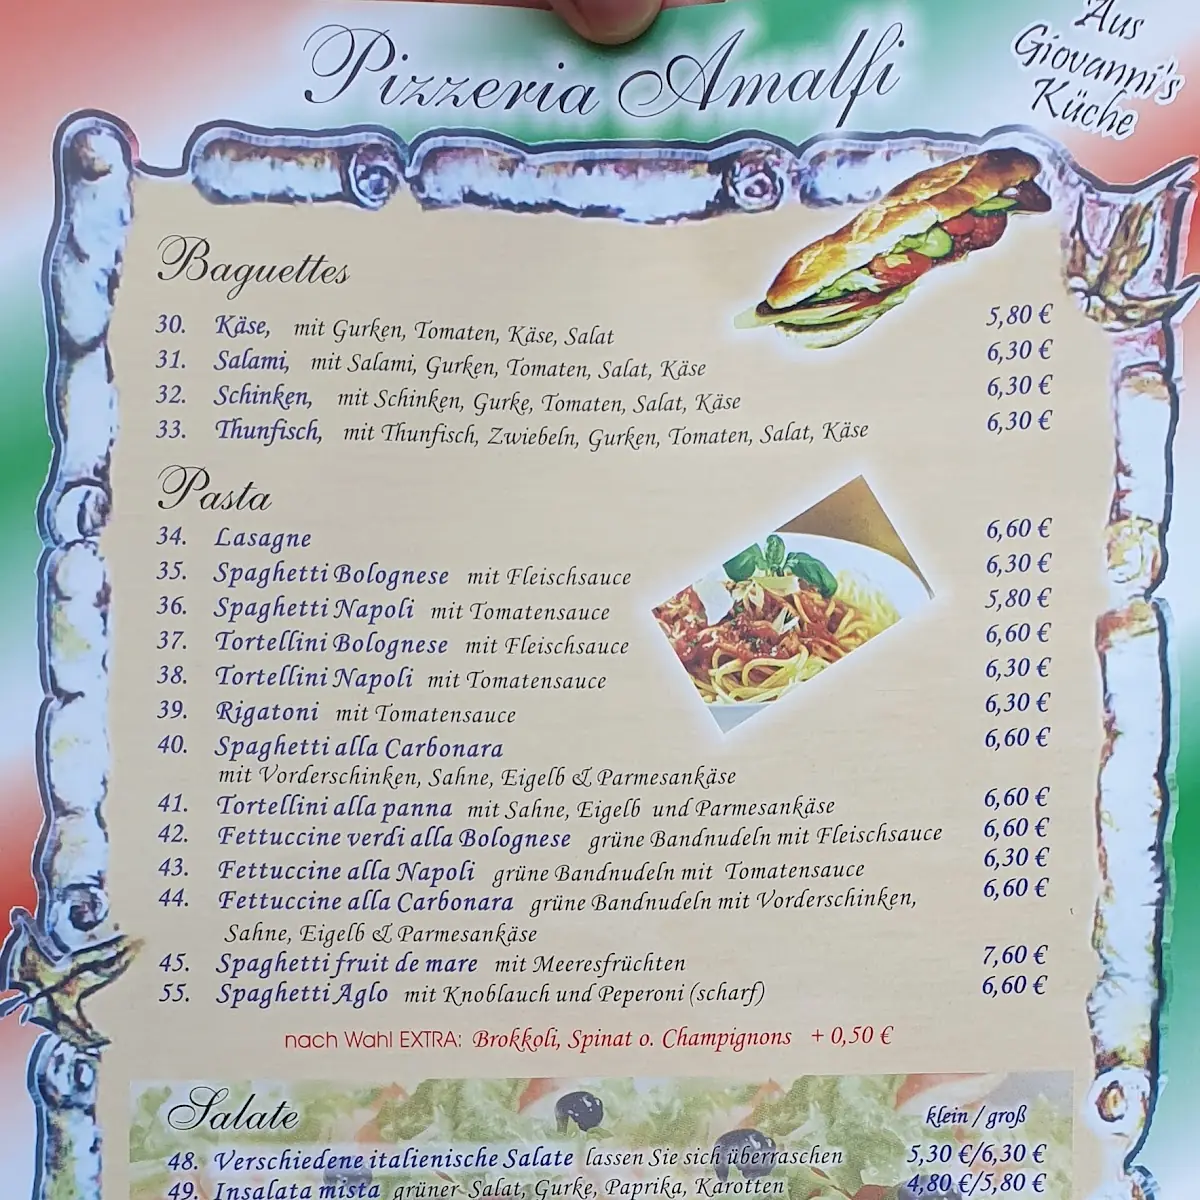 Pizzeria Amalfi
Aus
Giovanni's
Küche
Baguettes
30. Käse, mit Gurken, Tomaten, Käse, Salat 5,80 €
31. Salami, mit Salami, Gurken, Tomaten, Salat, Käse 6,30 €
32. Schinken, mit Schinken, Gurke, Tomaten, Salat, Käse 6,30 €
33. Thunfisch, mit Thunfisch, Zwiebeln, Gurken, Tomaten, Salat, Käse 6,30 €
Pasta
34. Lasagne 6,60 €
35. Spaghetti Bolognese mit Fleischsauce 6,30 €
36. Spaghetti Napoli mit Tomatensauce 5,80 €
37. Tortellini Bolognese mit Fleischsauce 6,60 €
38. Tortellini Napoli mit Tomatensauce 6,30 €
39. Rigatoni mit Tomatensauce 6,30 €
40. Spaghetti alla Carbonara 6,60 €
mit Vorderschinken, Sahne, Eigelb & Parmesankäse
41. Tortellini alla panna mit Sahne, Eigelb und Parmesankäse 6,60 €
42. Fettuccine verdi alla Bolognese grüne Bandnudeln mit Fleischsauce 6,60 €
43. Fettuccine alla Napoli grüne Bandnudeln mit Tomatensauce 6,30 €
44. Fettuccine alla Carbonara grüne Bandnudeln mit Vorderschinken, 6,60 €
Sahne, Eigelb & Parmesankäse
45. Spaghetti fruit de mare mit Meeresfrüchten 7,60 €
55. Spaghetti Aglo mit Knoblauch und Peperoni (scharf) 6,60 €
nach Wahl EXTRA: Brokkoli, Spinat o. Champignons + 0,50 €
Salate klein / groß
48. Verschiedene italienische Salate lassen Sie sich überraschen 5,30 €/6,30 €
49. Insalata mista grüner Salat, Gurke, Paprika, Karotten 4,80 €/5,80 €